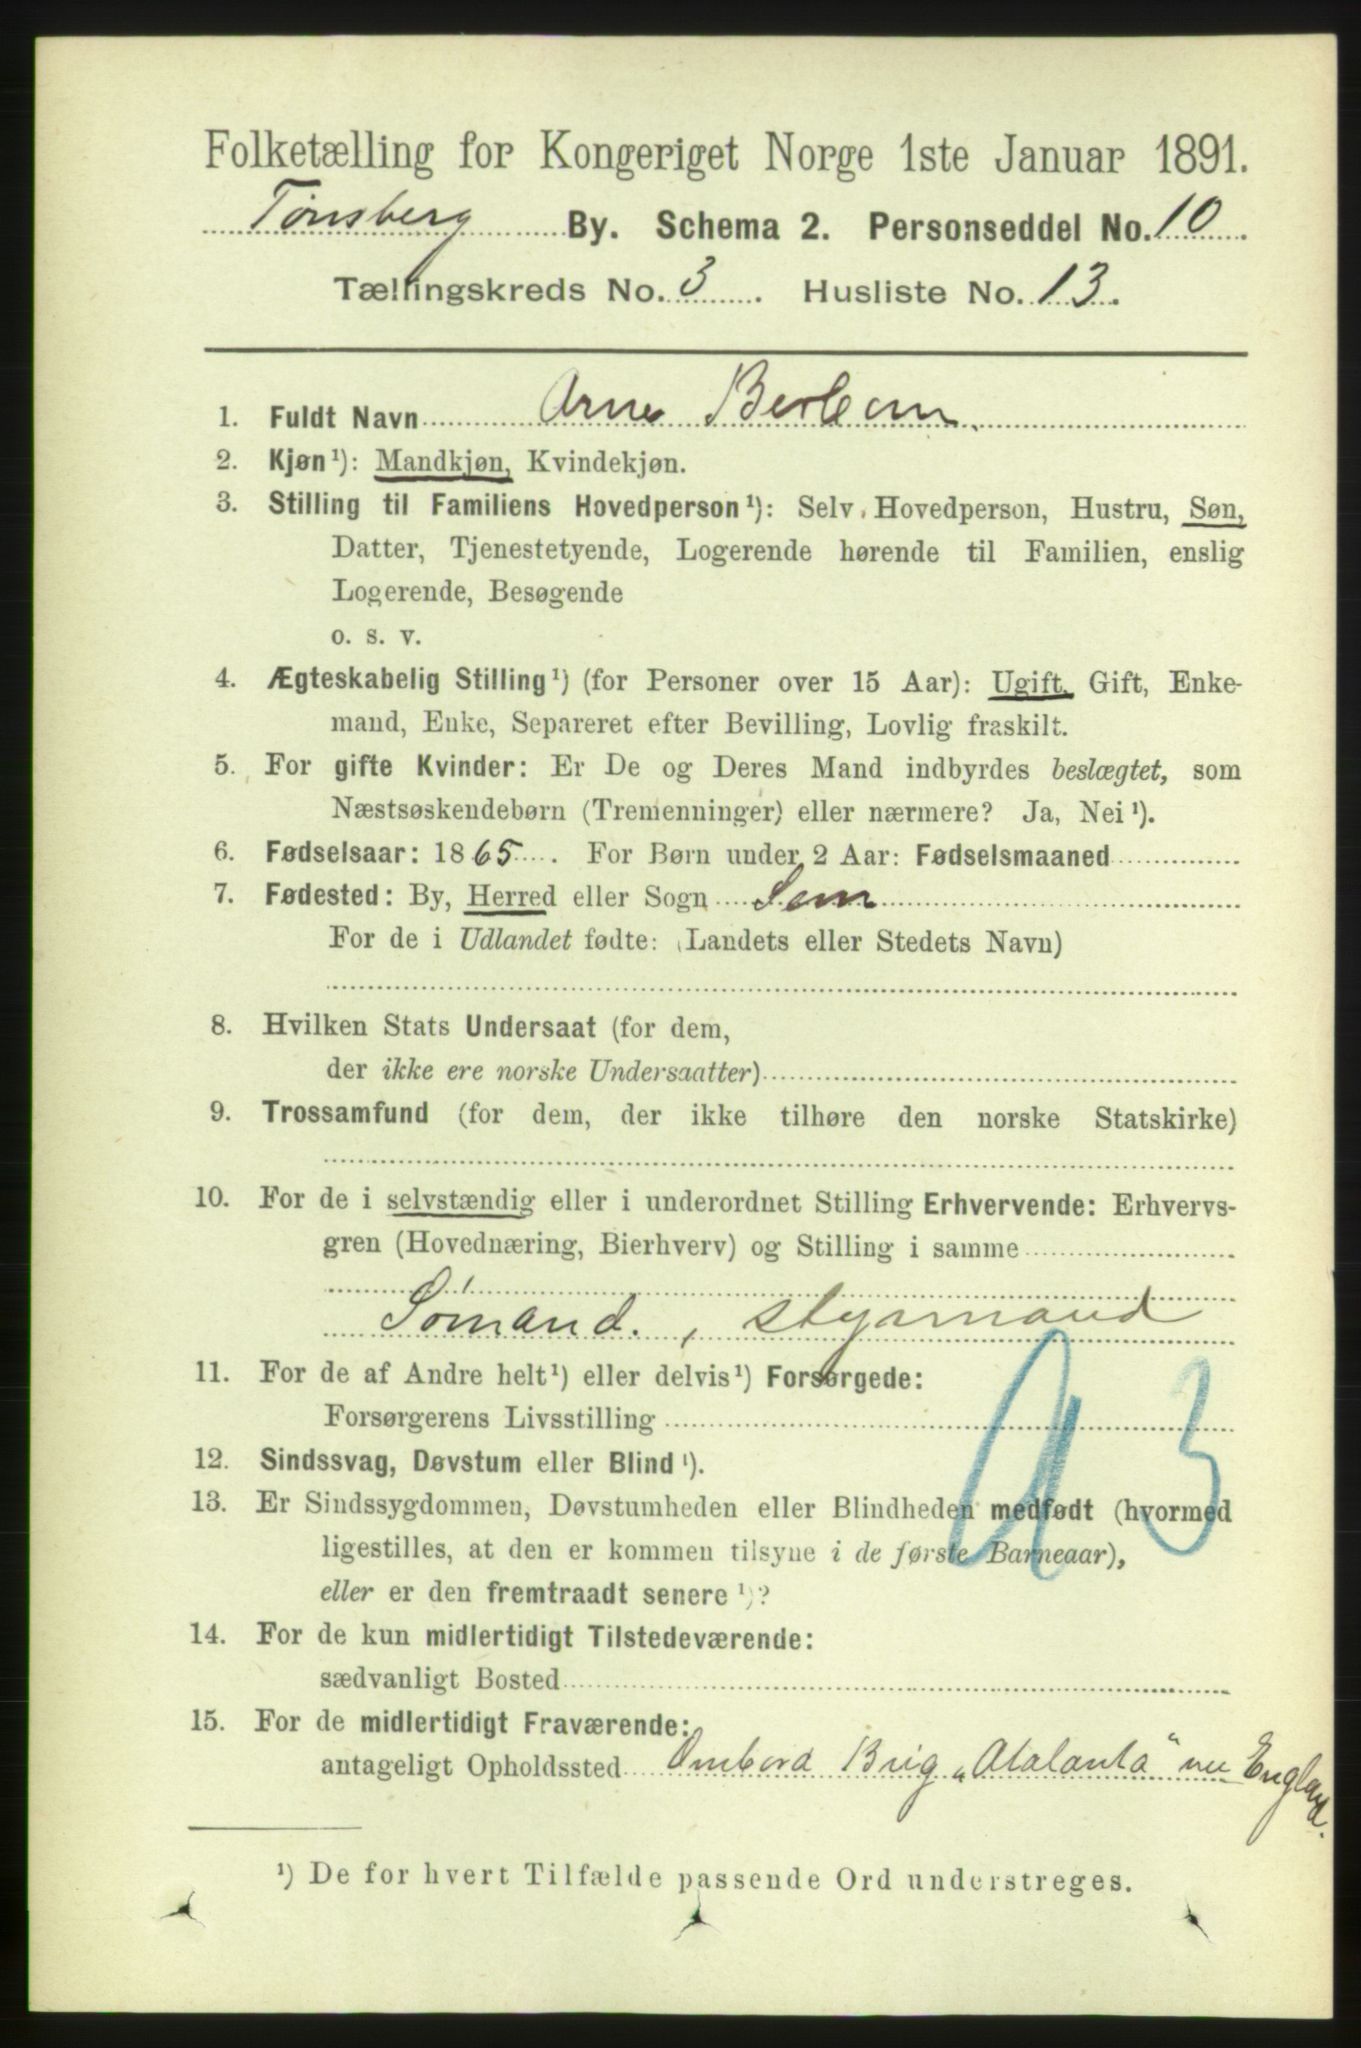 Folketælling for Kongeriget Norge 1ste Januar 1891.
Tønsberg By. Schema 2. Personseddel No. 10
Tællingskreds No. 3. Husliste No. 13.
1. Fuldt Navn Arne
2. Kjøn¹): Mandkjøn, Kvindekjøn.
3. Stilling til Familiens Hovedperson¹): Selv Hovedperson, Hustru, Søn,
Datter, Tjenestetyende, Logerende hørende til Familien, enslig
Logerende, Besøgende
o. s. v.
4. Ægteskabelig Stilling¹) (for Personer over 15 Aar): Ugift, Gift, Enke-
mand, Enke, Separeret efter Bevilling, Lovlig fraskilt.
5. For gifte Kvinder: Er De og Deres Mand indbyrdes beslægtet, som
Næstsøskendebørn (Tremenninger) eller nærmere? Ja, Nei¹).
6. Fødselsaar: 1865. For Børn under 2 Aar: Fødselsmaaned
7. Fødested: By, Herred eller Sogn Sem
For de i Udlandet fødte: (Landets eller Stedets Navn)
8. Hvilken Stats Undersaat (for dem,
der ikke ere norske Undersaatter)
9. Trossamfund (for dem, der ikke tilhøre den norske Statskirke)
10. For de i selvstændig eller i underordnet Stilling Erhvervende: Erhvervs-
gren (Hovednæring, Bierhverv) og Stilling i samme
Sømand., styrmand
11. For de af Andre helt¹) eller delvis¹) Forsørgede:
Forsørgerens Livsstilling
12. Sindssvag, Døvstum eller Blind¹).
13. Er Sindssygdommen, Døvstumheden eller Blindheden medfødt (hvormed
ligestilles, at den er kommen tilsyne i de første Barneaar),
eller er den fremtraadt senere¹)?
14. For de kun midlertidigt Tilstedeværende:
sædvanligt Bosted
15. For de midlertidigt Fraværende:
antageligt Opholdssted Ombord Brig „Atalanta" nu England.
¹) De for hvert Tilfælde passende Ord understreges.